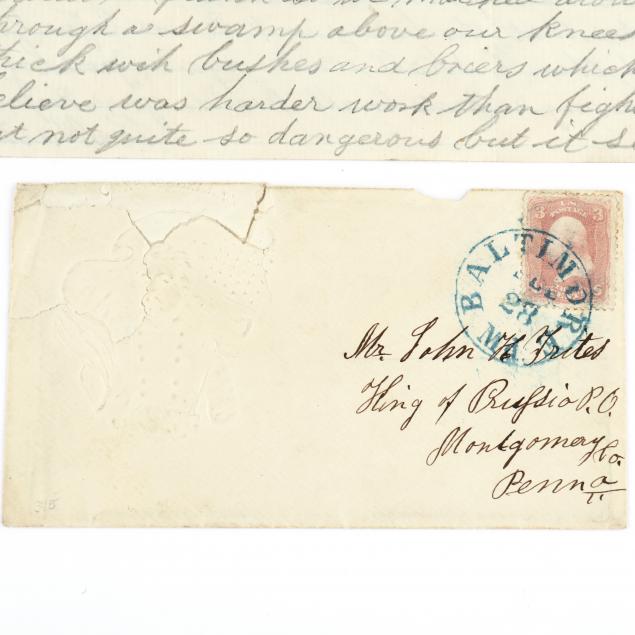 through a swamp above our knees
thick wih bushes and briers which
believe was harder work than figh
not quite so dangerous but it
3 U.S. POSTAGE 3
BALTIMORE
28
Md.
Mr. John H Frites
King of Prussia P.O.
Montgomery Co.
Penna
315